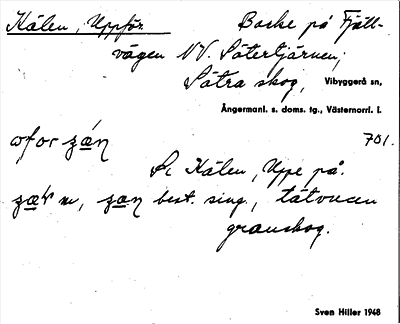 Kälen, Uppför Backe på Fjäll-
vägen NV. Sätertjärnen,
Sätra skog, Vibyggerå sn,
Ångermanl. s. doms. tg., Västernorrl. l.
701.
Se Kälen, Uppe på.
m, best. sing., tätvuxen
granskog.
Sven Hiller 1948